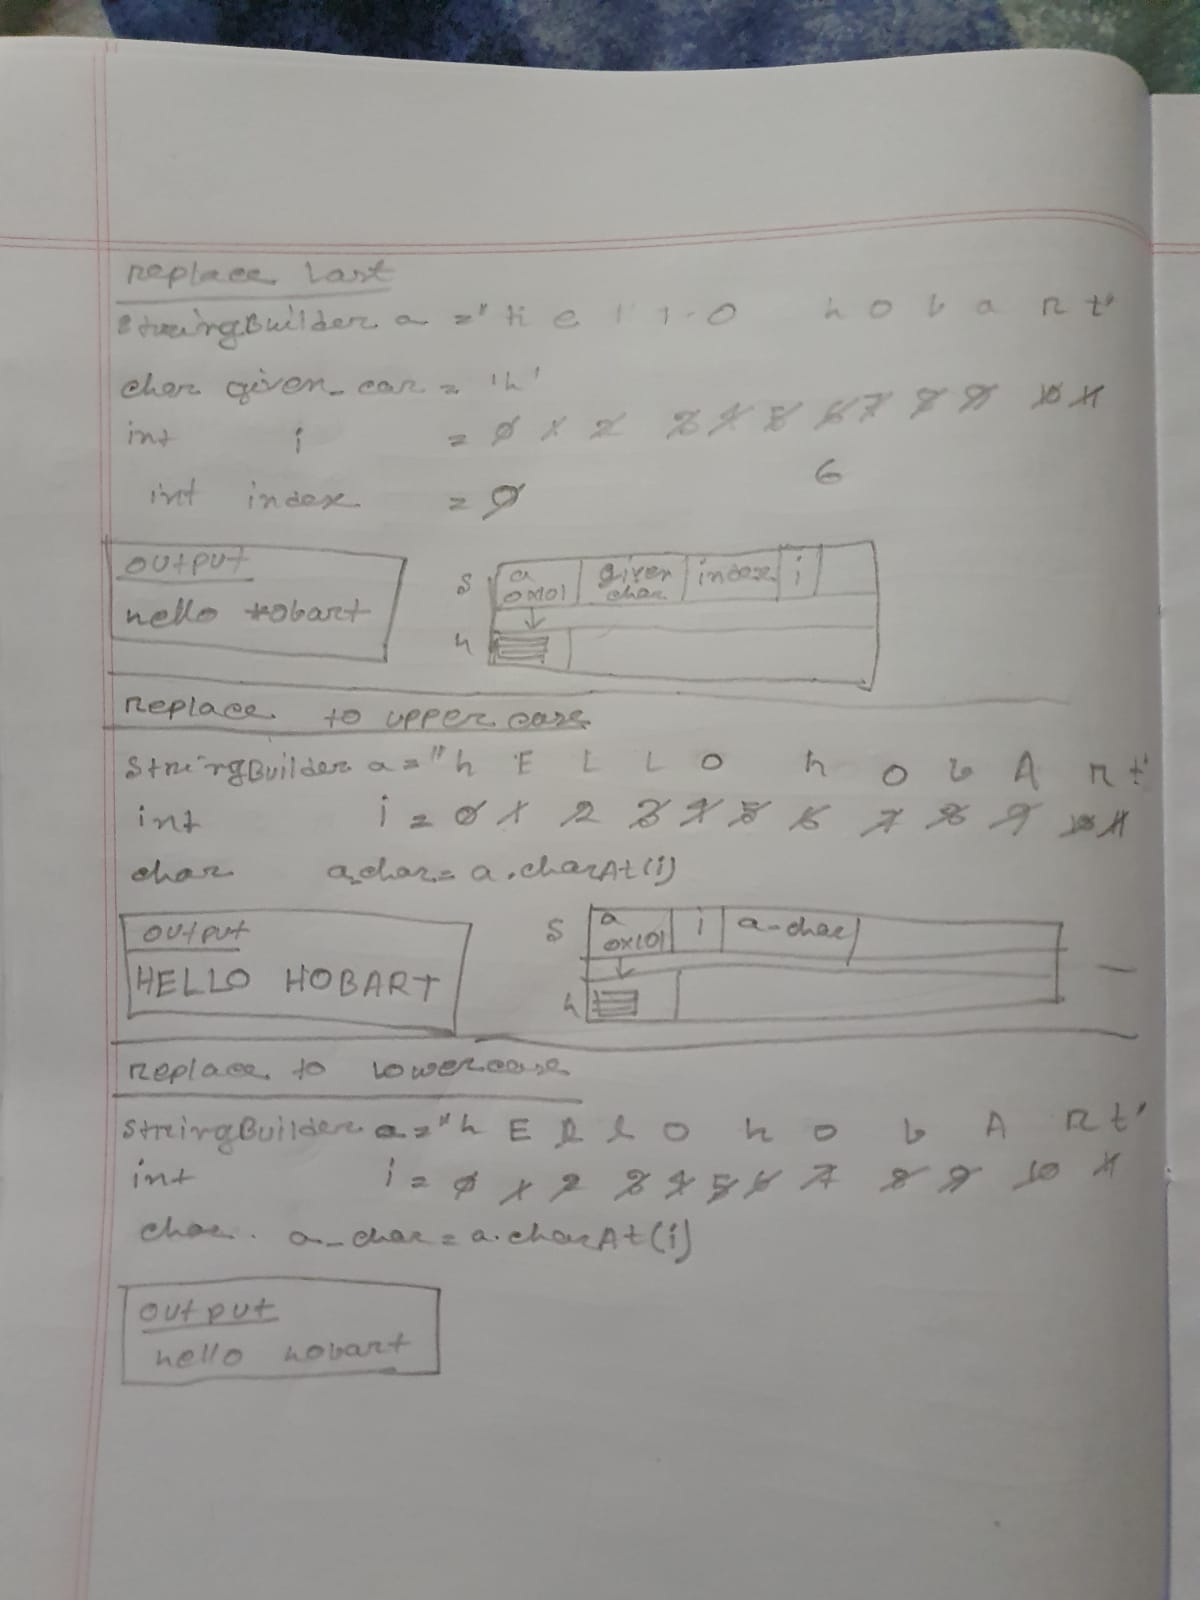 replace last
StringBuilder a = "H e l l o h o b a r t"
char given_car = 'h'
int i = 0 1 2 3 4 5 6 7 8 9 10 11
6
int index = 0
output
hello *obart
S a 0x101 given char index i
h
Replace to uppercase
StringBuilder a = "h E L L O h o b A r t"
int i = 0 1 2 3 4 5 6 7 8 9 10 11
char a_char = a.charAt(i)
output
HELLO HOBART
S a 0x101 i a-char
h
replace to Lowercase
StringBuilder a = "h E l l o h o b A r t"
int i = 0 1 2 3 4 5 6 7 8 9 10 11
char. a_char = a.charAt(i)
output
hello hobart